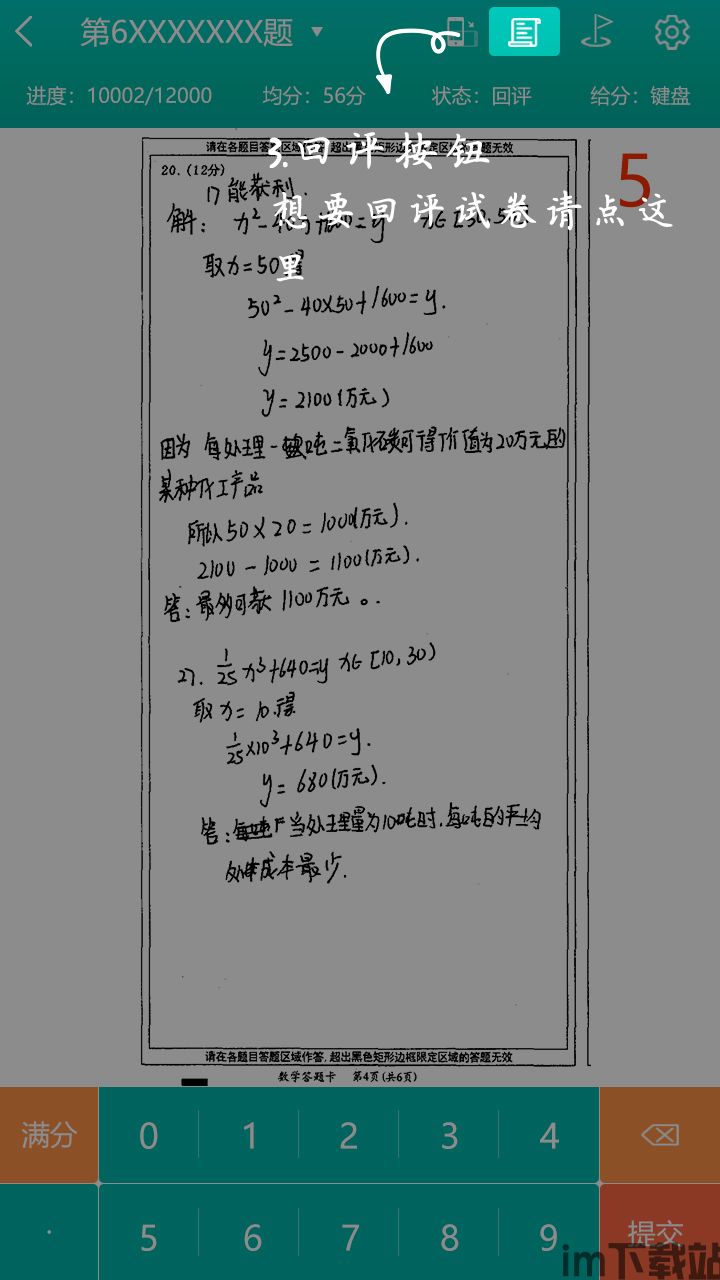 第6XXXXXXX题
进度：10002/12000 均分：56分 状态：回评 给分：键盘
请在各题目答题区域作答，超出黑色矩形边框限定区域的答题无效
3.回评按钮
5
20.（12分）
1) 能获利.
想要回评试卷请点这
解：
取x=50得
里
50²-40×50+1600=y.
y=2500-2000+1600
y=2100(万元)
因为 每处理一吨二氧化碳可得价值为20万元的
某种化工产品
所以50×20=1000(万元).
2100-1000=1100(万元).
答：最多可获 1100万元。
2). 1/25 x³+640=y x∈[10,30)
取x=10.得
1/25×10³+640=y.
y=680(万元).
答： 当处理量为10吨时，每吨的平均
处理成本最少.
请在各题目答题区域作答，超出黑色矩形边框限定区域的答题无效
数学答题卡 第4页(共6页)
满分 0 1 2 3 4
· 5 6 7 8 9 提交
im下载站